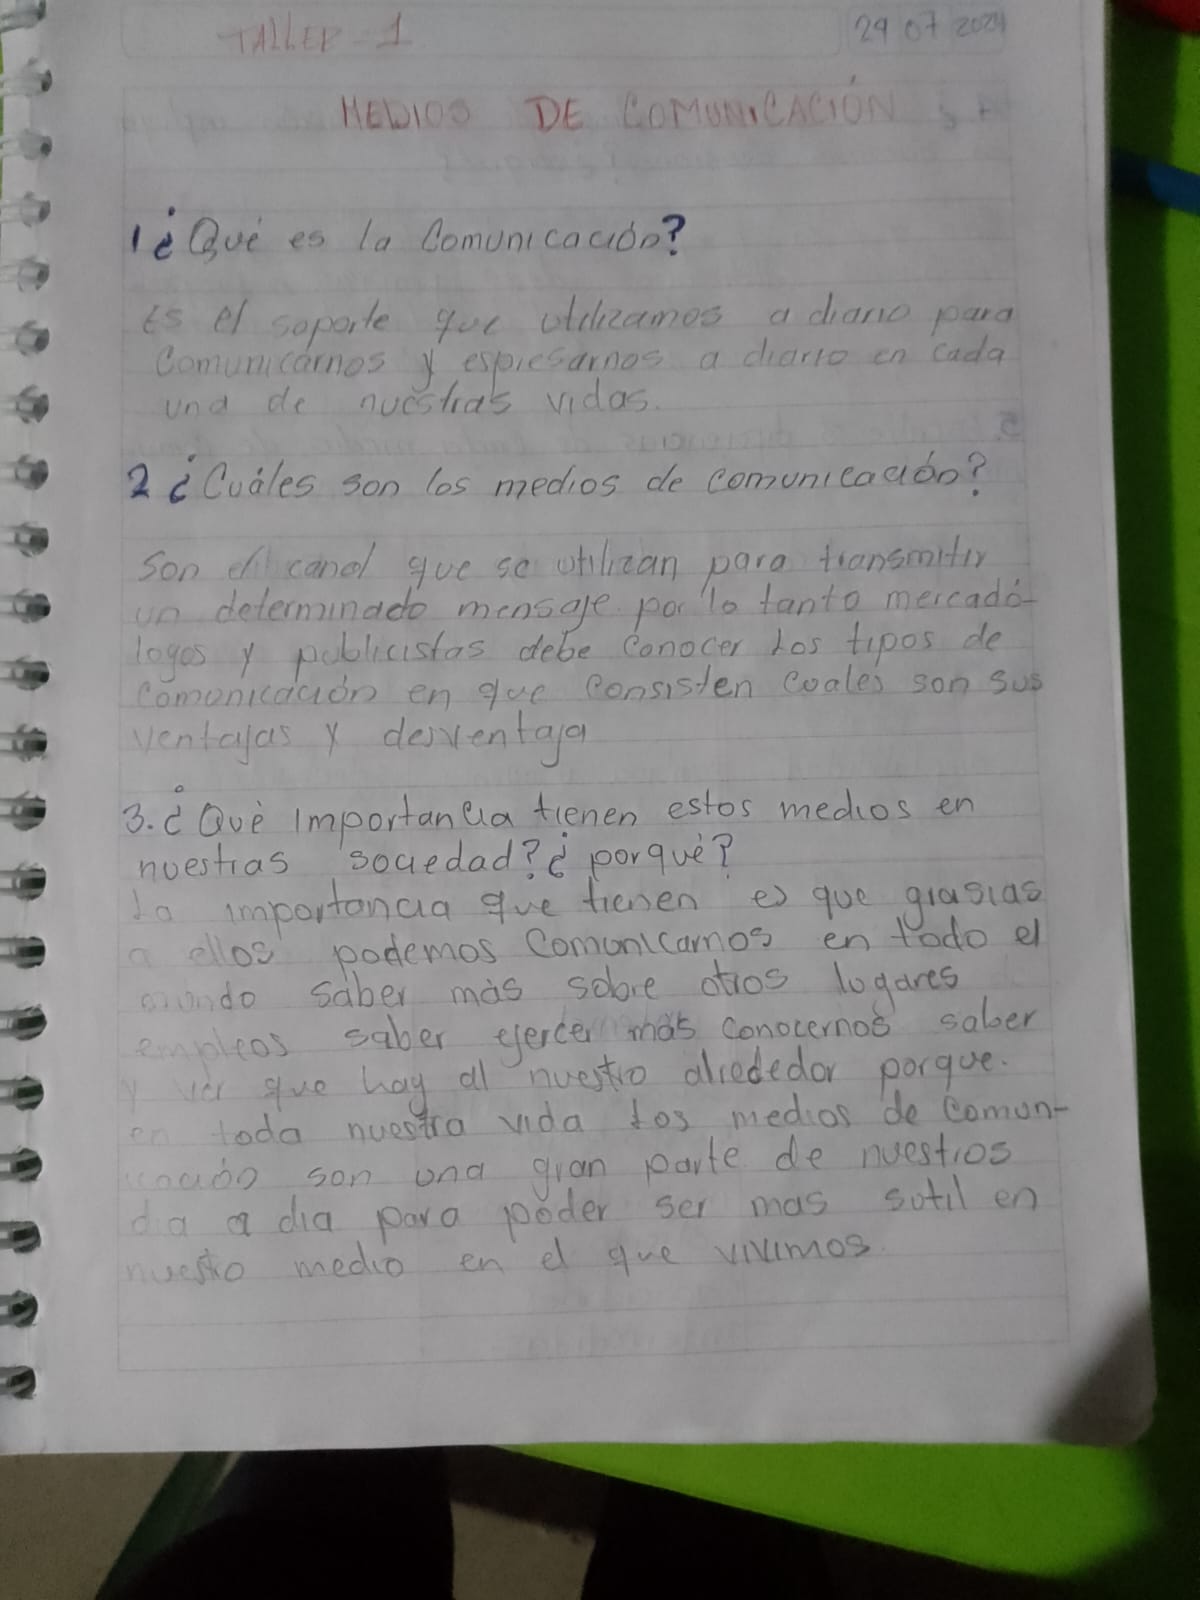 TALLER - 1
29 07 2024
MEDIOS DE COMUNICACIÓN
1 ¿Qué es la Comunicación?
Es el soporte que utilizamos a diario para
Comunicarnos y espresarnos a diario en cada
una de nuestras vidas.
2 ¿Cuáles son los medios de comunicación?
Son el canal que se utilizan para transmitir
un determinado mensaje por lo tanto mercadó-
logos y publicistas debe conocer los tipos de
comunicación en que consisten cuales son sus
ventajas y desventaja
3. ¿Què importancia tienen estos medios en
nuestras sociedad? ¿porqué?
La importancia que tienen es que grasias
a ellos podemos Comunicarnos en todo el
mundo saber más sobre otros lugares
empleos saber ejercer más conocernos saber
y ver que hay al nuestro alrededor porque.
en toda nuestra vida los medios de comun-
icación son una gran parte de nuestros
dia a dia para poder ser mas sutil en
nuestro medio en el que vivimos.